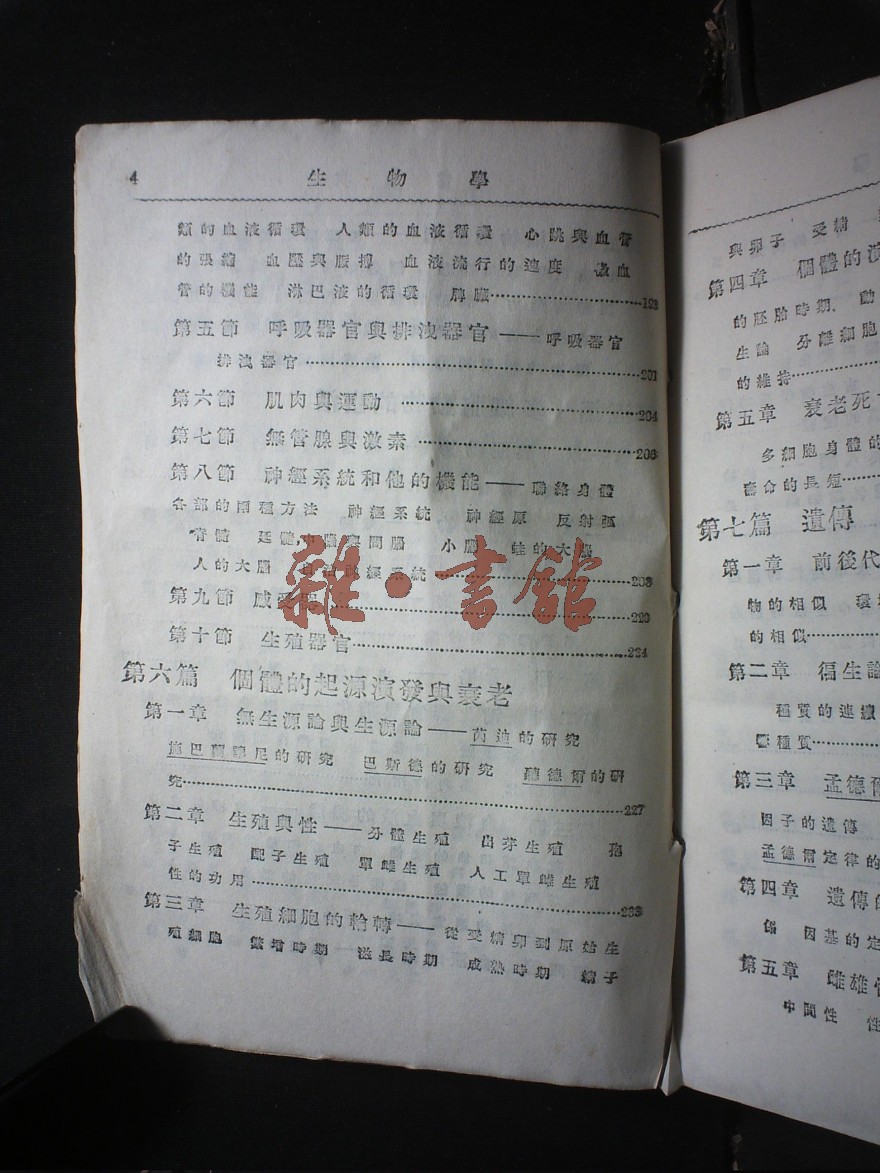 4 生物學
類的血液循環 人類的血液循環 心跳與血管
的張縮 血壓與脈搏 血液流行的速度 微血
管的機能 淋巴液的循環 脾臟……192
第五節 呼吸器官與排洩器官——呼吸器官
排洩器官……201
第六節 肌肉與運動……204
第七節 無管腺與激素……206
第八節 神經系統和他的機能——聯絡身體
各部的兩種方法 神經系統 神經原 反射弧
脊髓 延髓 中腦與間腦 小腦 蛙的大腦
人的大腦 神經系統……208
第九節 感受……220
第十節 生殖器官……224
第六篇 個體的起源演發與衰老
第一章 無生源論與生源論——芮迪的研究
施巴蘭澤尼的研究 巴斯德的研究 聽德爾的研
究……227
第二章 生殖與性——分體生殖 出芽生殖 孢
子生殖 配子生殖 單雌生殖 人工單雌生殖
性的功用……233
第三章 生殖細胞的輪轉——從受精卵到原始生
殖細胞 繁增時期 滋長時期 成熟時期 精子
雜·書館
與卵子 受精
第四章 個體的演
的胚胎時期 動
生論 分離細胞
的維持……
第五章 衰老死
多細胞身體的
壽命的長短……
第七篇 遺傳
第一章 前後代
物的相似 環
的相似……
第二章 種質的連續
種質……
第三章 孟德爾
因子的遺傳
孟德爾定律的
第四章 遺傳的
係 因基的定
第五章 雌雄性
中間性 性